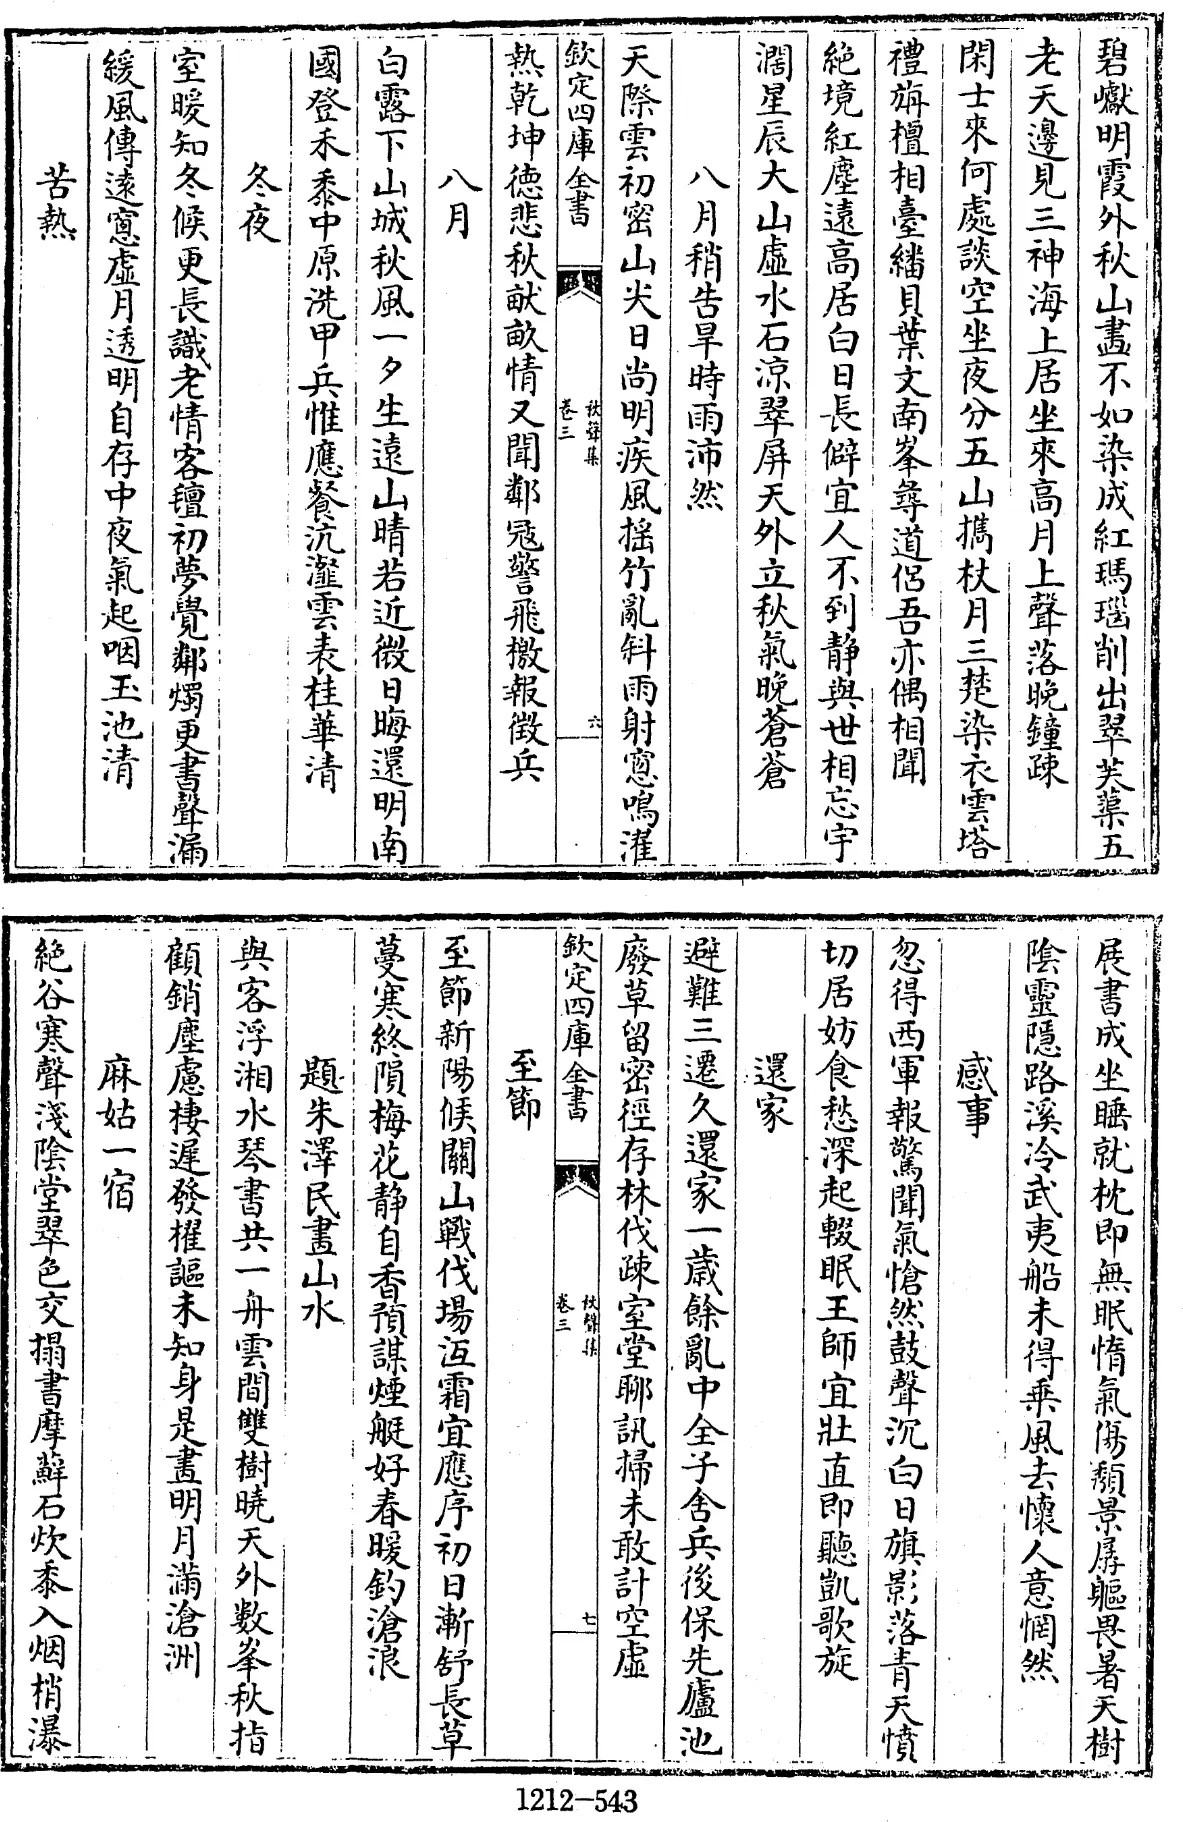 碧巘明霞外秋山畫不如染成紅瑪瑙削出翠芙蕖五
老天邊見三神海上居坐來高月上聲落晚鐘踈
閑士來何處談空坐夜分五山攜杖月三楚染衣雲塔
禮旃檀相臺繙貝葉文南峯尋道侶吾亦偶相聞
絶境紅塵遠高居白日長僻宜人不到静與世相忘宇
濶星辰大山虛水石涼翠屏天外立秋氣晚蒼蒼
八月稍告旱時雨沛然
天際雲初密山尖日尚明疾風揺竹亂斜雨射窻鳴濯
欽定四庫全書
秋聲集
卷三
六
熱乾坤徳悲秋畎畝情又聞鄰冦警飛檄報徴兵
八月
白露下山城秋風一夕生遠山晴若近微日晦還明南
國登禾黍中原洗甲兵惟應餐沆瀣雲表桂華清
冬夜
室暖知冬候更長識老情客氊初夢覺鄰燭更書聲漏
緩風傳遠窻虛月透明自存中夜氣起咽玉池清
苦熱
展書成坐睡就枕即無眠惰氣傷頽景孱軀畏暑天樹
陰靈隱路溪冷武夷船未得乘風去懷人意惘然
感事
忽得西軍報驚聞氣愴然鼓聲沉白日旗影落青天憤
切居妨食愁深起輟眠王師宜壯直即聽凱歌旋
還家
避難三遷久還家一歲餘亂中全子舍兵後保先廬池
廢草留密徑存林伐疎室堂聊訊掃未敢計空虛
欽定四庫全書
秋聲集
卷三
七
至節
至節新陽候關山戰伐場沍霜宜應序初日漸舒長草
蔓寒終隕梅花靜自香預謀煙艇好春暖釣滄浪
題朱澤民畫山水
與客浮湘水琴書共一舟雲間雙樹曉天外數峯秋指
顧銷塵慮棲遲發櫂謳未知身是畫明月滿滄洲
麻姑一宿
絶谷寒聲淺陰堂翠色交搨書摩蘚石炊黍入烟梢瀑
1212-543